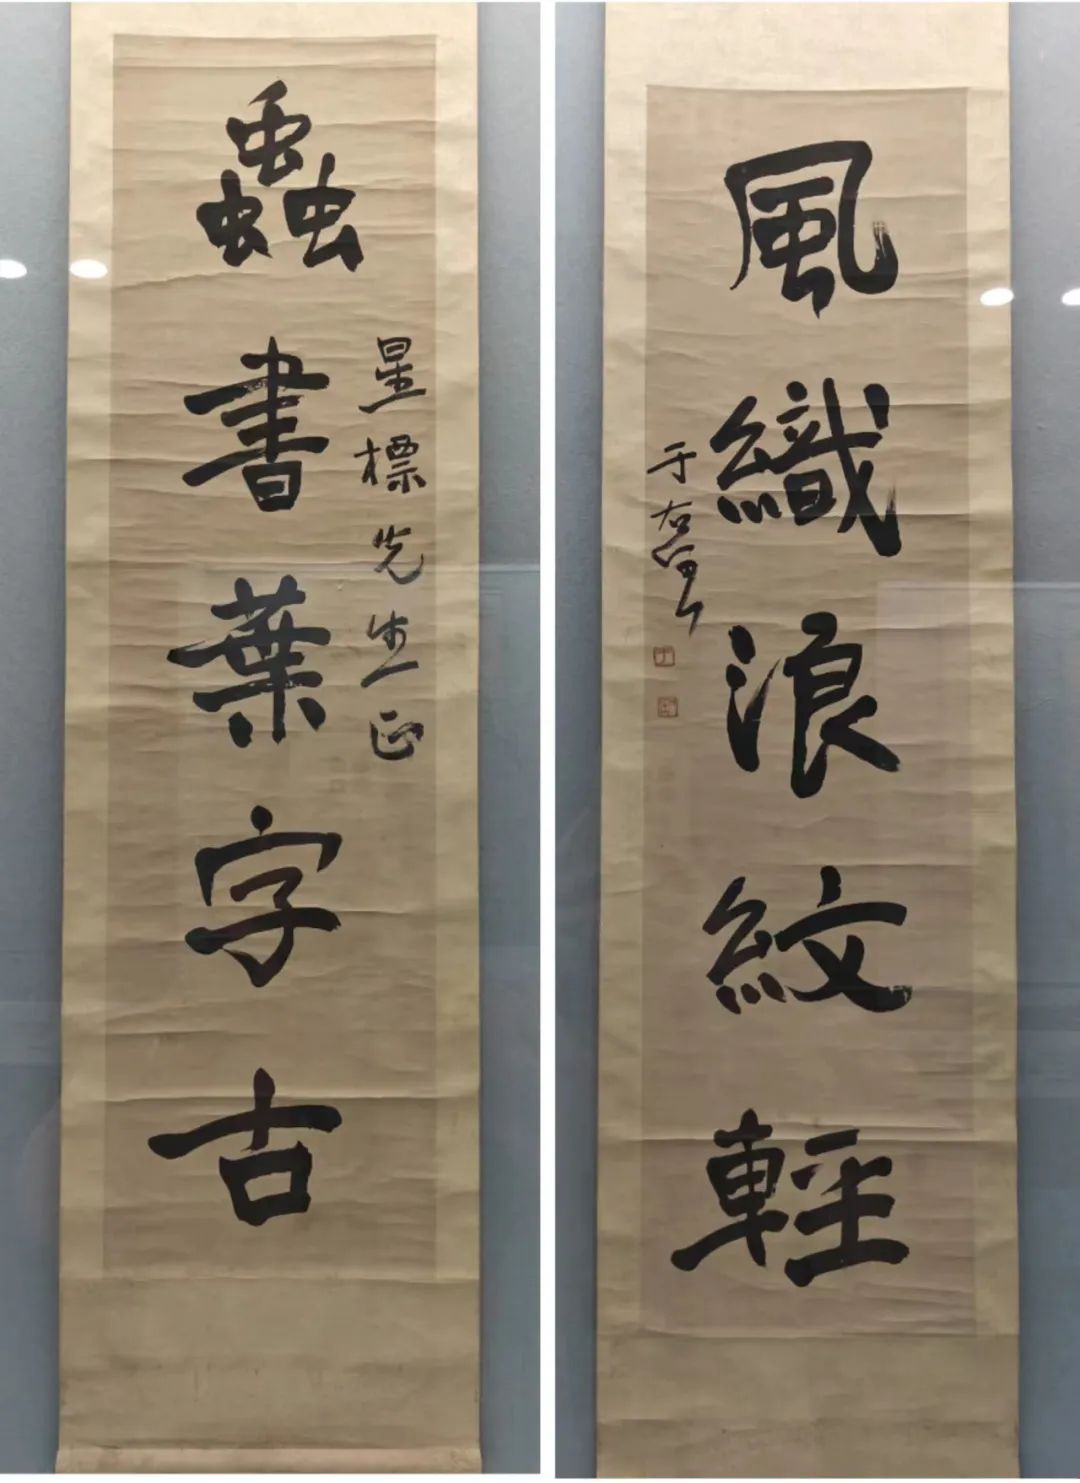 蟲書葉字古
星標先生正
風織浪紋輕
于右任